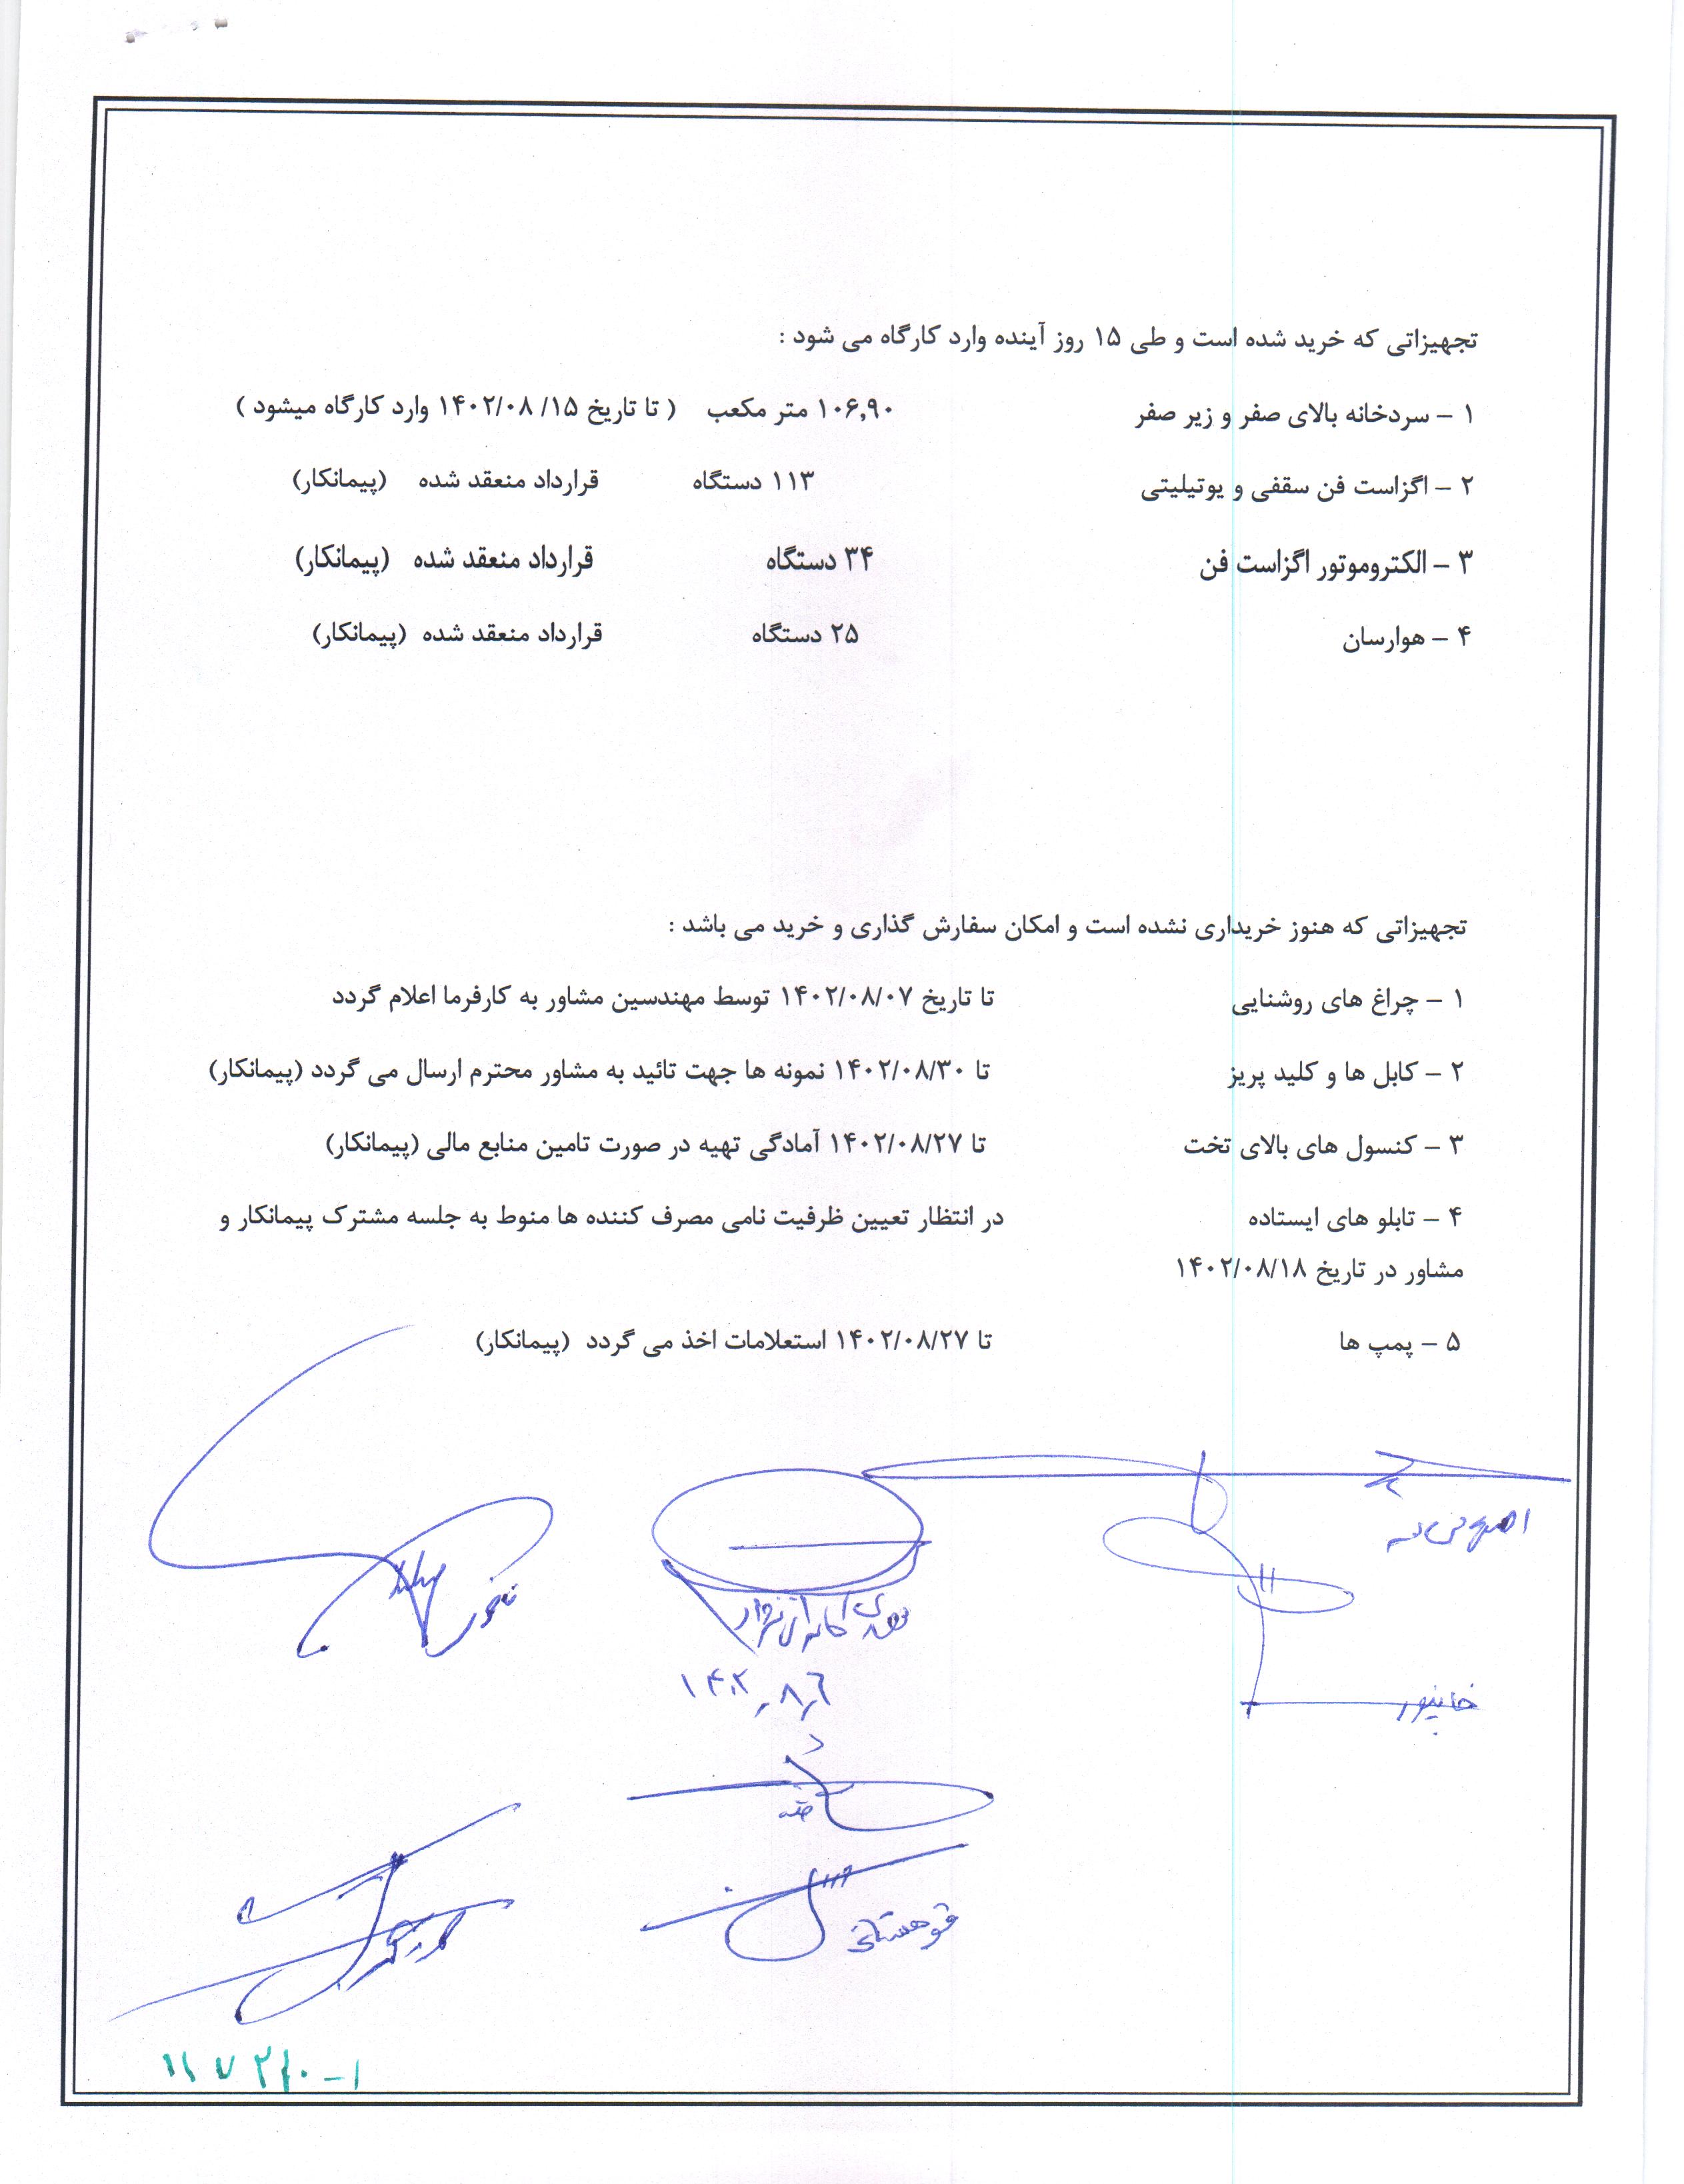 تجهیزاتی که خرید شده است و طی ۱۵ روز آینده وارد کارگاه می شود :
۱ – سردخانه بالای صفر و زیر صفر ۱۰۶,۹۰ متر مکعب ( تا تاریخ ۱۵/ ۱۴۰۲/۰۸ وارد کارگاه میشود )
۲ – اگزاست فن سقفی و یوتیلیتی ۱۱۳ دستگاه قرارداد منعقد شده (پیمانکار)
۳ – الکتروموتور اگزاست فن ۳۴ دستگاه قرارداد منعقد شده (پیمانکار)
۴ – هوارسان ۲۵ دستگاه قرارداد منعقد شده (پیمانکار)
تجهیزاتی که هنوز خریداری نشده است و امکان سفارش گذاری و خرید می باشد :
۱ – چراغ های روشنایی تا تاریخ ۱۴۰۲/۰۸/۰۷ توسط مهندسین مشاور به کارفرما اعلام گردد
۲ – کابل ها و کلید پریز تا ۱۴۰۲/۰۸/۳۰ نمونه ها جهت تائید به مشاور محترم ارسال می گردد (پیمانکار)
۳ – کنسول های بالای تخت تا ۱۴۰۲/۰۸/۲۷ آمادگی تهیه در صورت تامین منابع مالی (پیمانکار)
۴ – تابلو های ایستاده در انتظار تعیین ظرفیت نامی مصرف کننده ها منوط به جلسه مشترک پیمانکار و
مشاور در تاریخ ۱۴۰۲/۰۸/۱۸
۵ – پمپ ها تا ۱۴۰۲/۰۸/۲۷ استعلامات اخذ می گردد (پیمانکار)
خانپور
قوهستانی